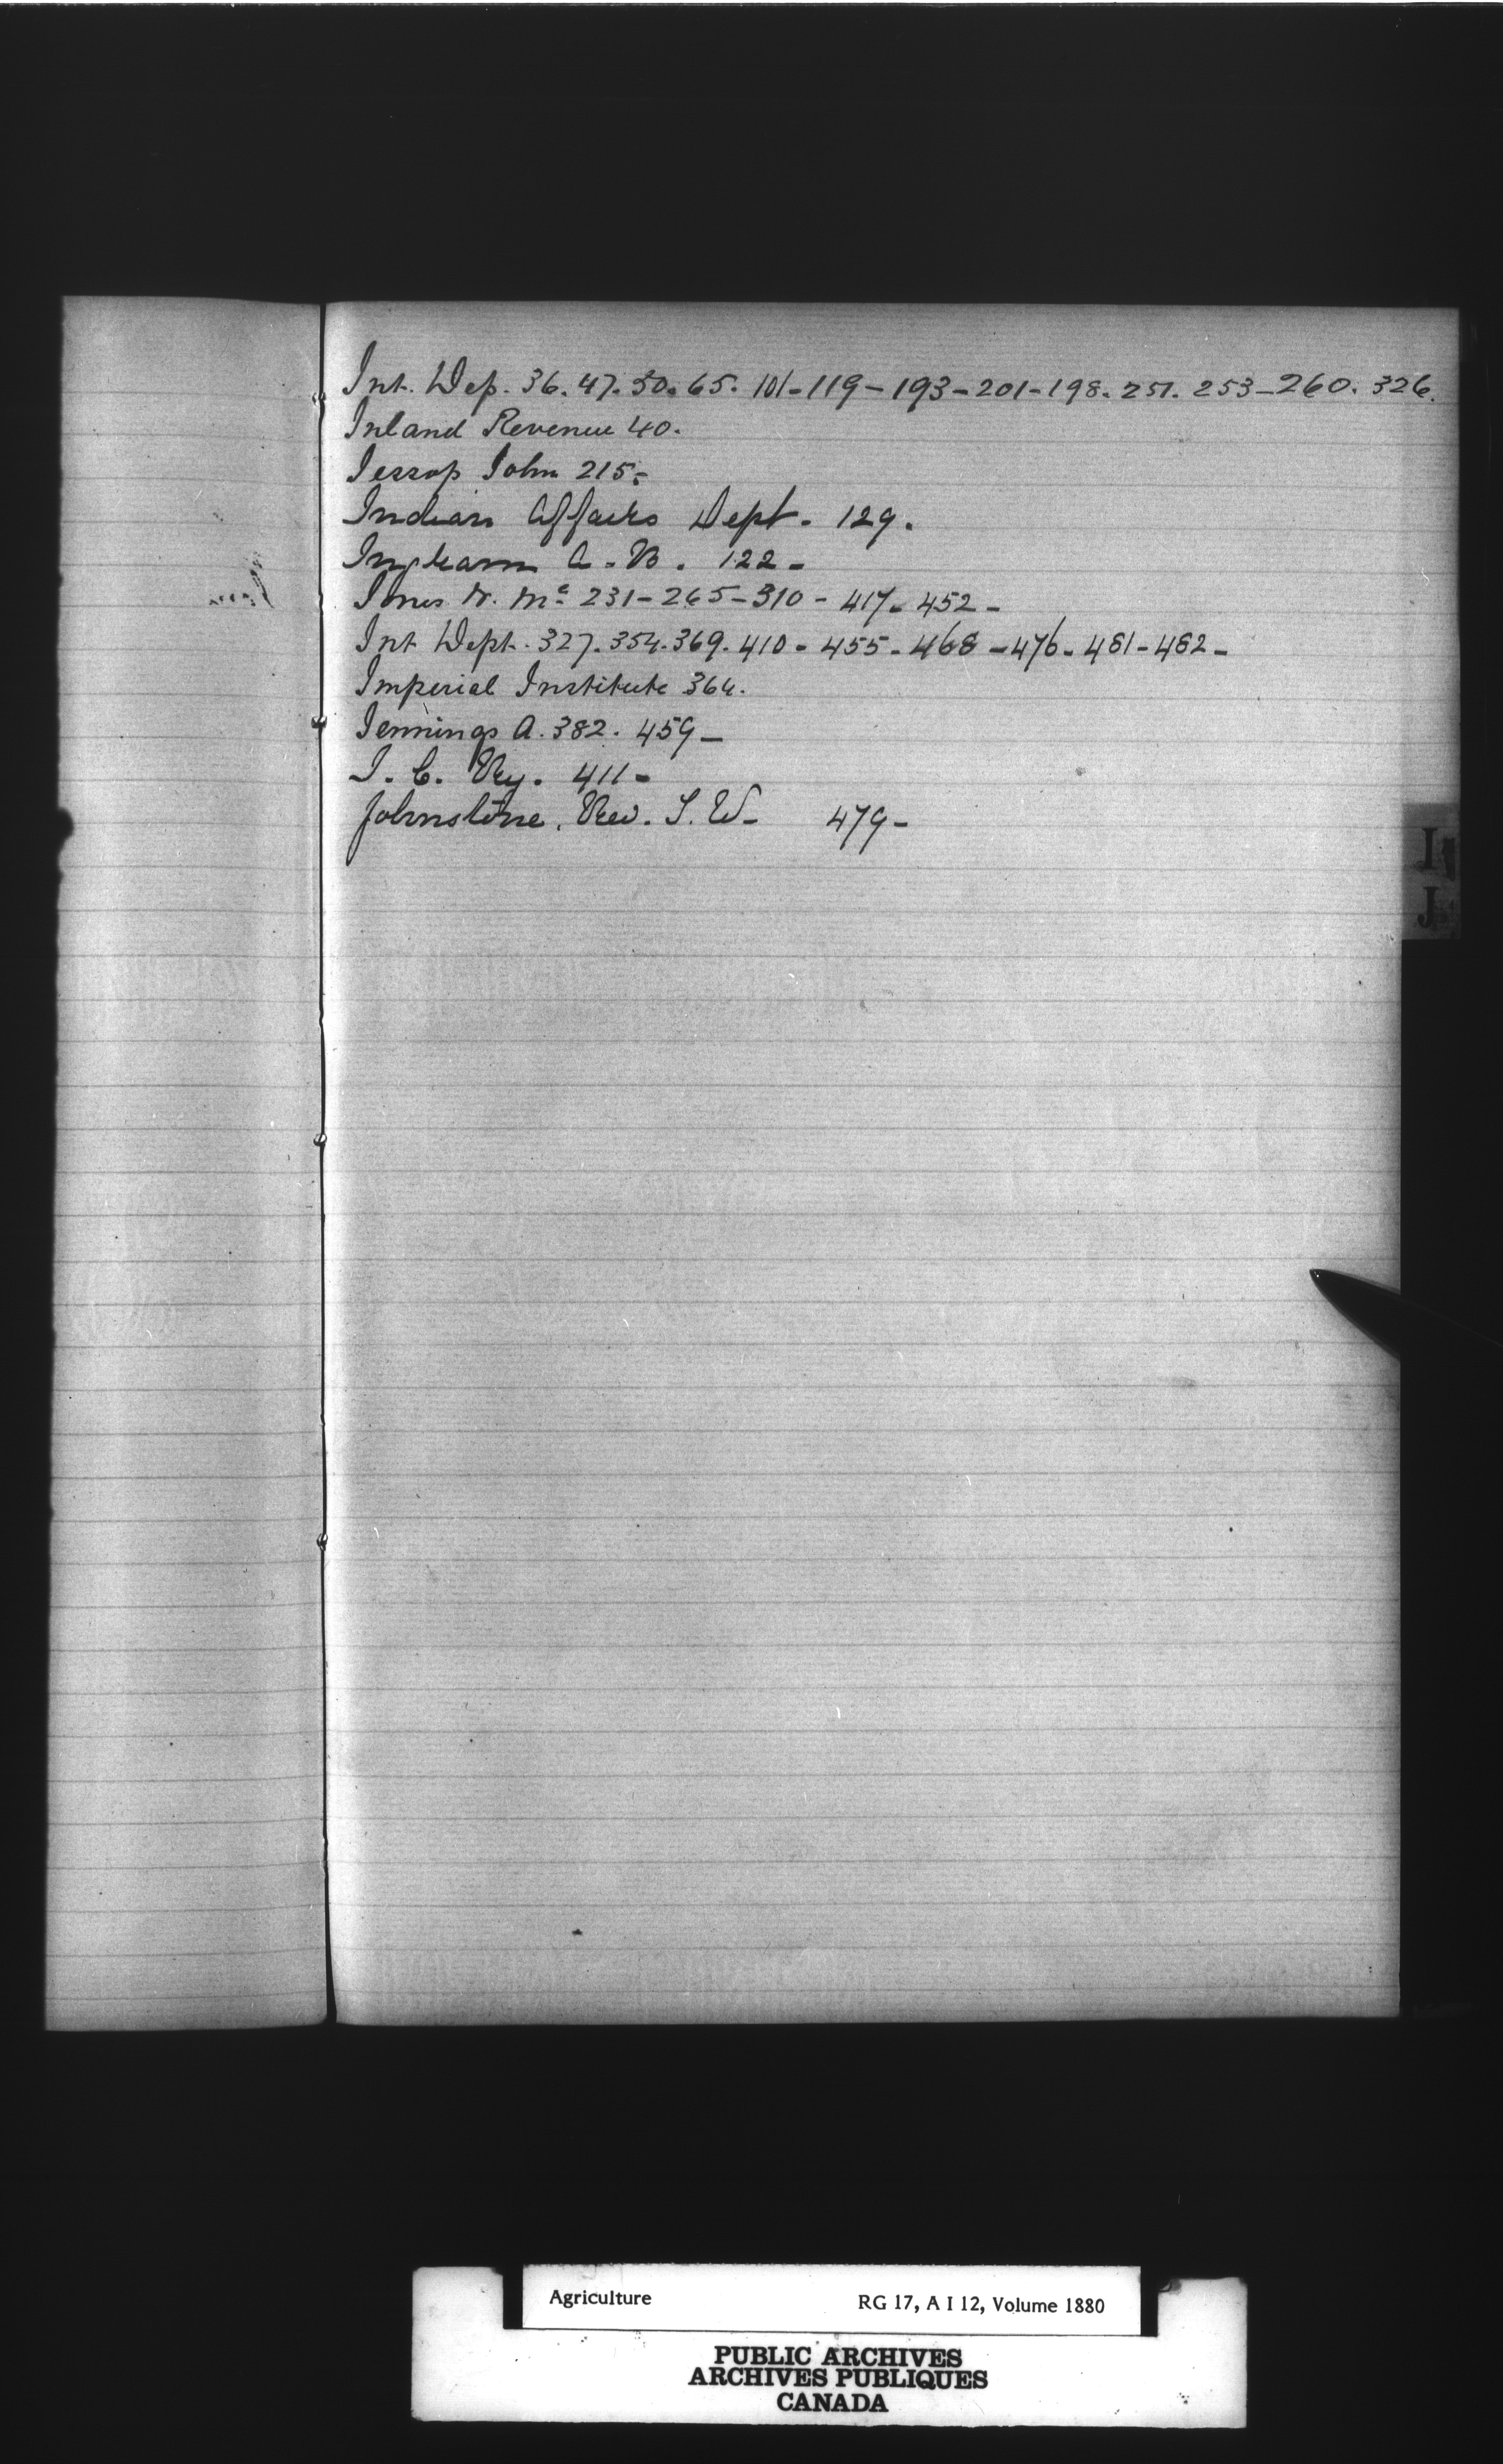 Int. Dep. 36. 47. 50. 65. 101 - 119 - 193 - 201 - 198. 251. 253 - 260. 326.
Inland Revenue 40.
Jessop John 215 -
Indian Affairs Dept. 129.
Ingram A. B. 122 -
Jones 231 - 265 - 310 - 417 - 452 -
Int Dept. 327. 354. 369. 410 - 455 - 468 - 476 - 481 - 482 -
Imperial Institute 364.
Jennings A. 382. 459 -
I. C. Ry. 411 -
Johnstone, Rev. S. W - 479 -
I
J
Agriculture RG 17, A I 12, Volume 1880
PUBLIC ARCHIVES
ARCHIVES PUBLIQUES
CANADA